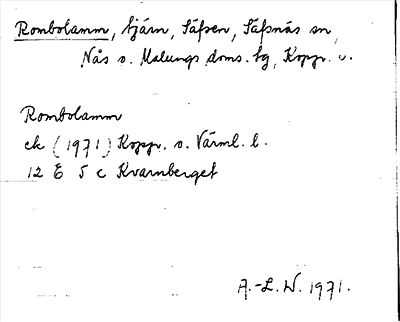 Rombolamm, tjärn, Säfsen, Säfsnäs sn,
Nås o. Malungs doms. tg, Kopp. l.
Rombolamm
ek (1971) Kopp. o. Värml. l.
12 E 5 c Kvarnberget
A.-L. W. 1971.